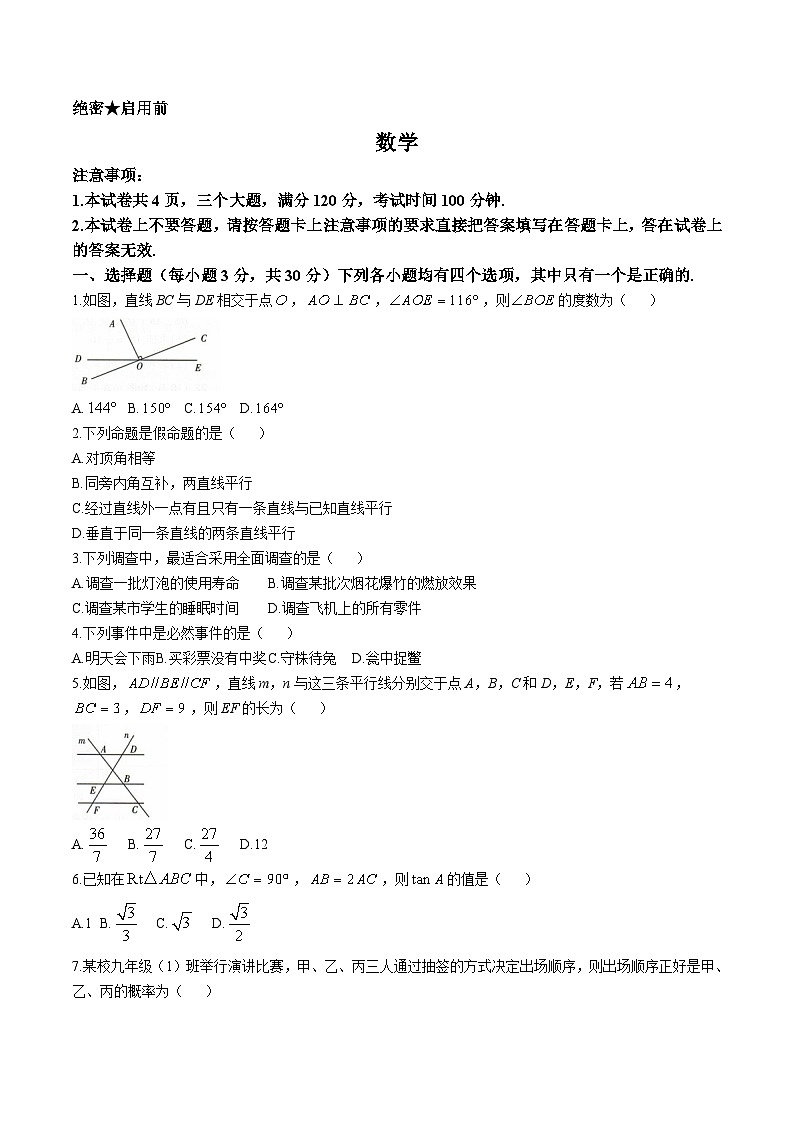 绝密★启用前
数学
注意事项：
1.本试卷共4页，三个大题，满分120分，考试时间100分钟.
2.本试卷上不要答题，请按答题卡上注意事项的要求直接把答案填写在答题卡上，答在试卷上
的答案无效.
一、选择题（每小题3分，共30分）下列各小题均有四个选项，其中只有一个是正确的.
1.如图，直线BC与DE相交于点O，AO⊥BC，∠AOE=116°，则∠BOE的度数为（ ）
A
C
D
O
E
B
A.144° B.150° C.154° D.164°
2.下列命题是假命题的是（ ）
A.对顶角相等
B.同旁内角互补，两直线平行
C.经过直线外一点有且只有一条直线与已知直线平行
D.垂直于同一条直线的两条直线平行
3.下列调查中，最适合采用全面调查的是（ ）
A.调查一批灯泡的使用寿命 B.调查某批次烟花爆竹的燃放效果
C.调查某市学生的睡眠时间 D.调查飞机上的所有零件
4.下列事件中是必然事件的是（ ）
A.明天会下雨B.买彩票没有中奖C.守株待兔 D.瓮中捉鳖
5.如图，AD//BE//CF，直线m，n与这三条平行线分别交于点A，B，C和D，E，F，若AB=4，
BC=3，DF=9，则EF的长为（ ）
m n
A D
E B
F C
A.36/7 B.27/7 C.27/4 D.12
6.已知在Rt△ABC中，∠C=90°，AB=2AC，则tan A的值是（ ）
A.1 B.√3/3 C.√3 D.√3/2
7.某校九年级（1）班举行演讲比赛，甲、乙、丙三人通过抽签的方式决定出场顺序，则出场顺序正好是甲、
乙、丙的概率为（ ）